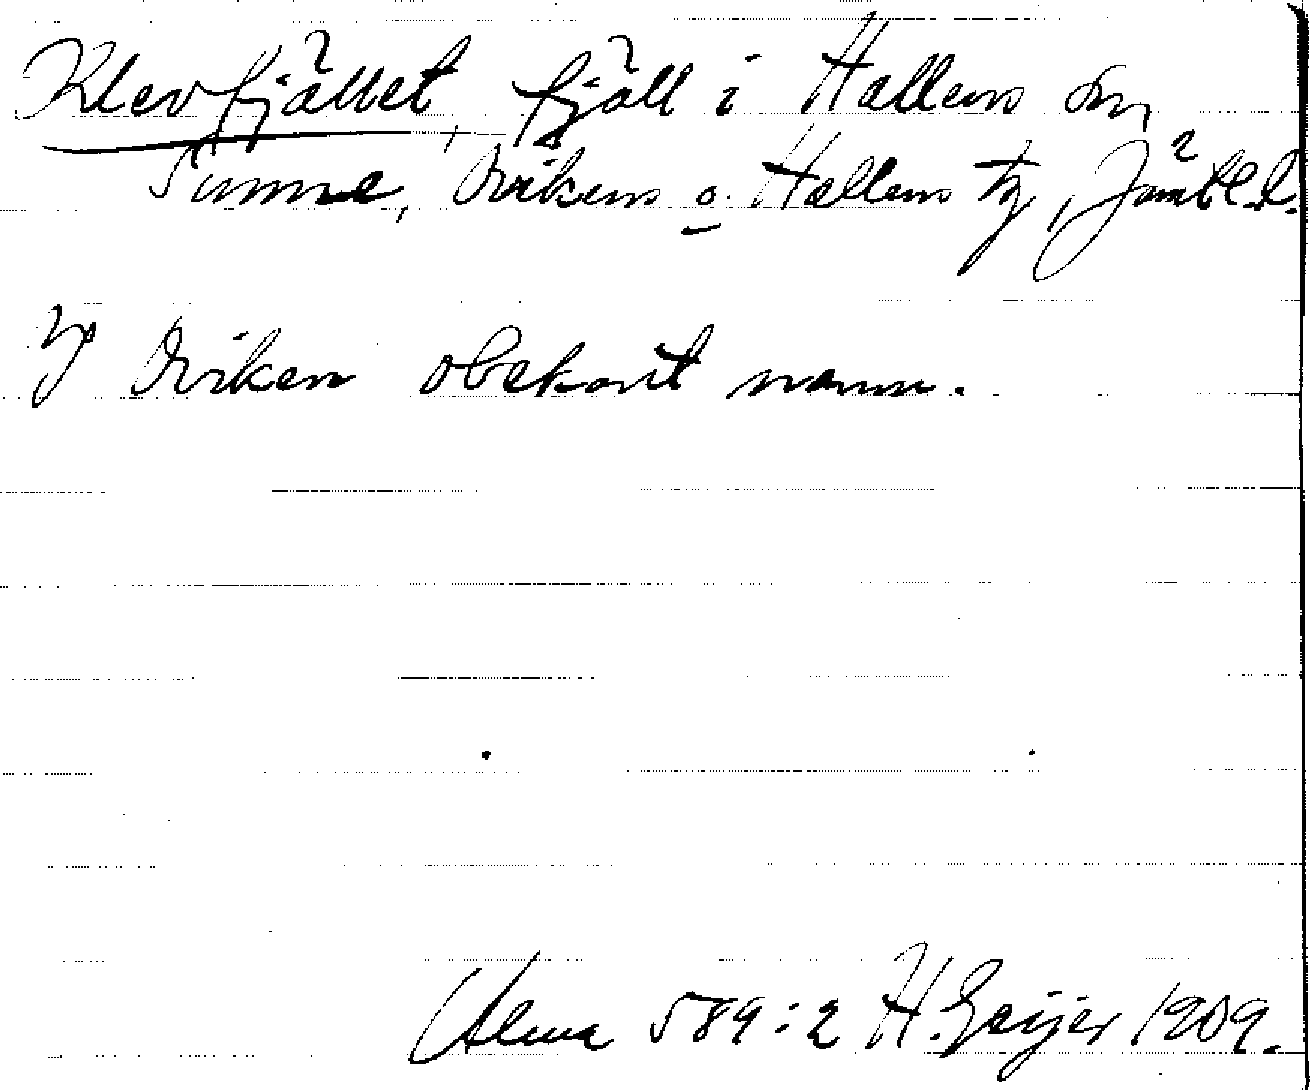 Klevfjället, fjäll i Hallens sn,
Sunne, Ovikens o. Hallens tg, Jämtl. l.
I Oviken obekant namn.
Ulma 589:2 H. Geijer 1909.